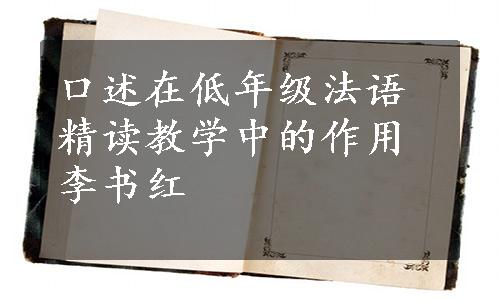 口述在低年级法语
精读教学中的作用
李书红